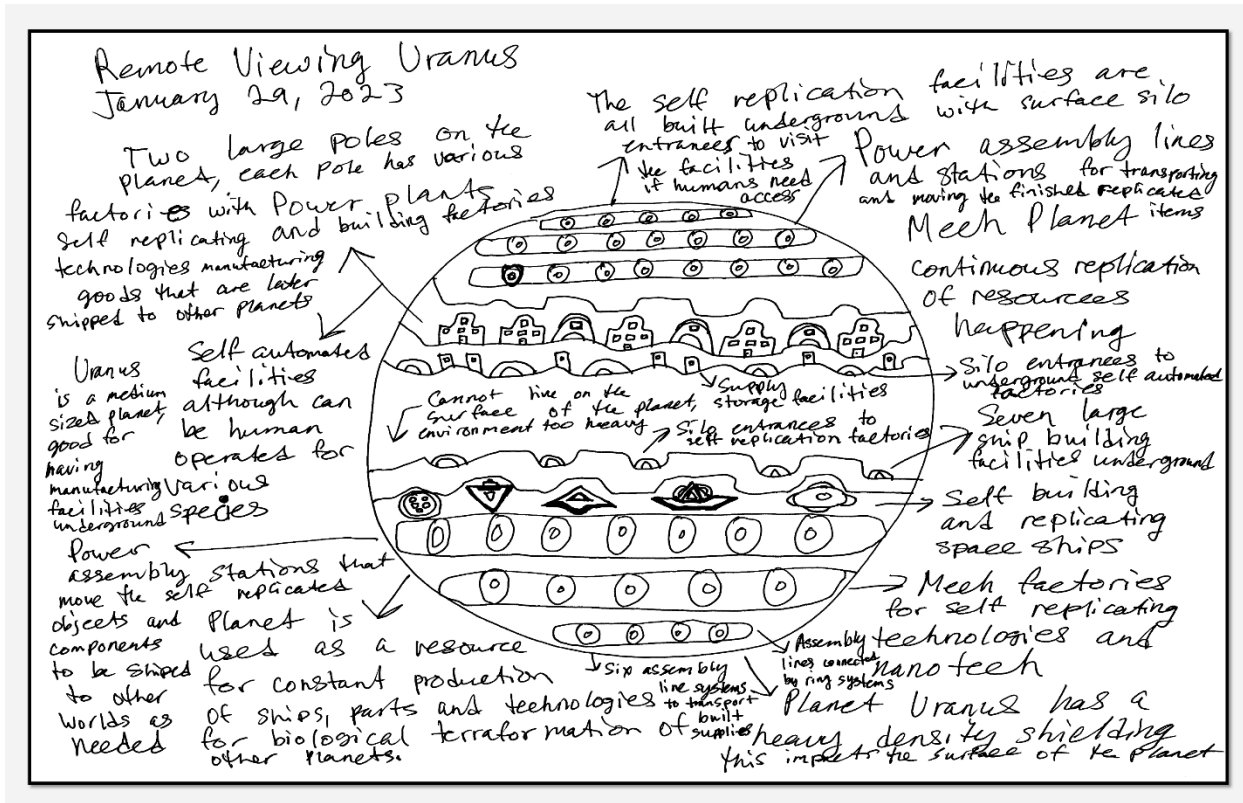 Remote Viewing Uranus
January 29, 2023
Two large poles on the
planet, each pole has various
factories with Power plants
self replicating and building factories
technologies manufacturing
goods that are later
shipped to other planets
The self replication facilities are
all built underground with surface silo
entrances to visit
the facilities
if humans need
access
Power assembly lines
and stations for transporting
and moving the finished replicated
Mech Planet items
continuous replication
of resources
happening
Silo entrances to
underground self automated
factories
Seven large
ship building
facilities underground
Self building
and replicating
space ships
Mech factories
for self replicating
technologies and
nano tech
Uranus
is a medium
sized planet,
good for
having
manufacturing
facilities
underground
Self automated
facilities
although can
be human
operated for
various
species
Cannot live on the
surface of the planet,
environment too heavy
Supply
storage facilities
Silo entrances to
self replication factories
Power
assembly stations that
move the self replicated
objects and
components
to be shiped
to other
worlds as
needed
Planet is
used as a resource
for constant production
of ships, parts and technologies
for biological terraformation of
other planets.
Six assembly
line systems
to transport
built
supplies
Assembly
lines connected
by ring systems
Planet Uranus has a
heavy density shielding
this impacts the surface of the planet